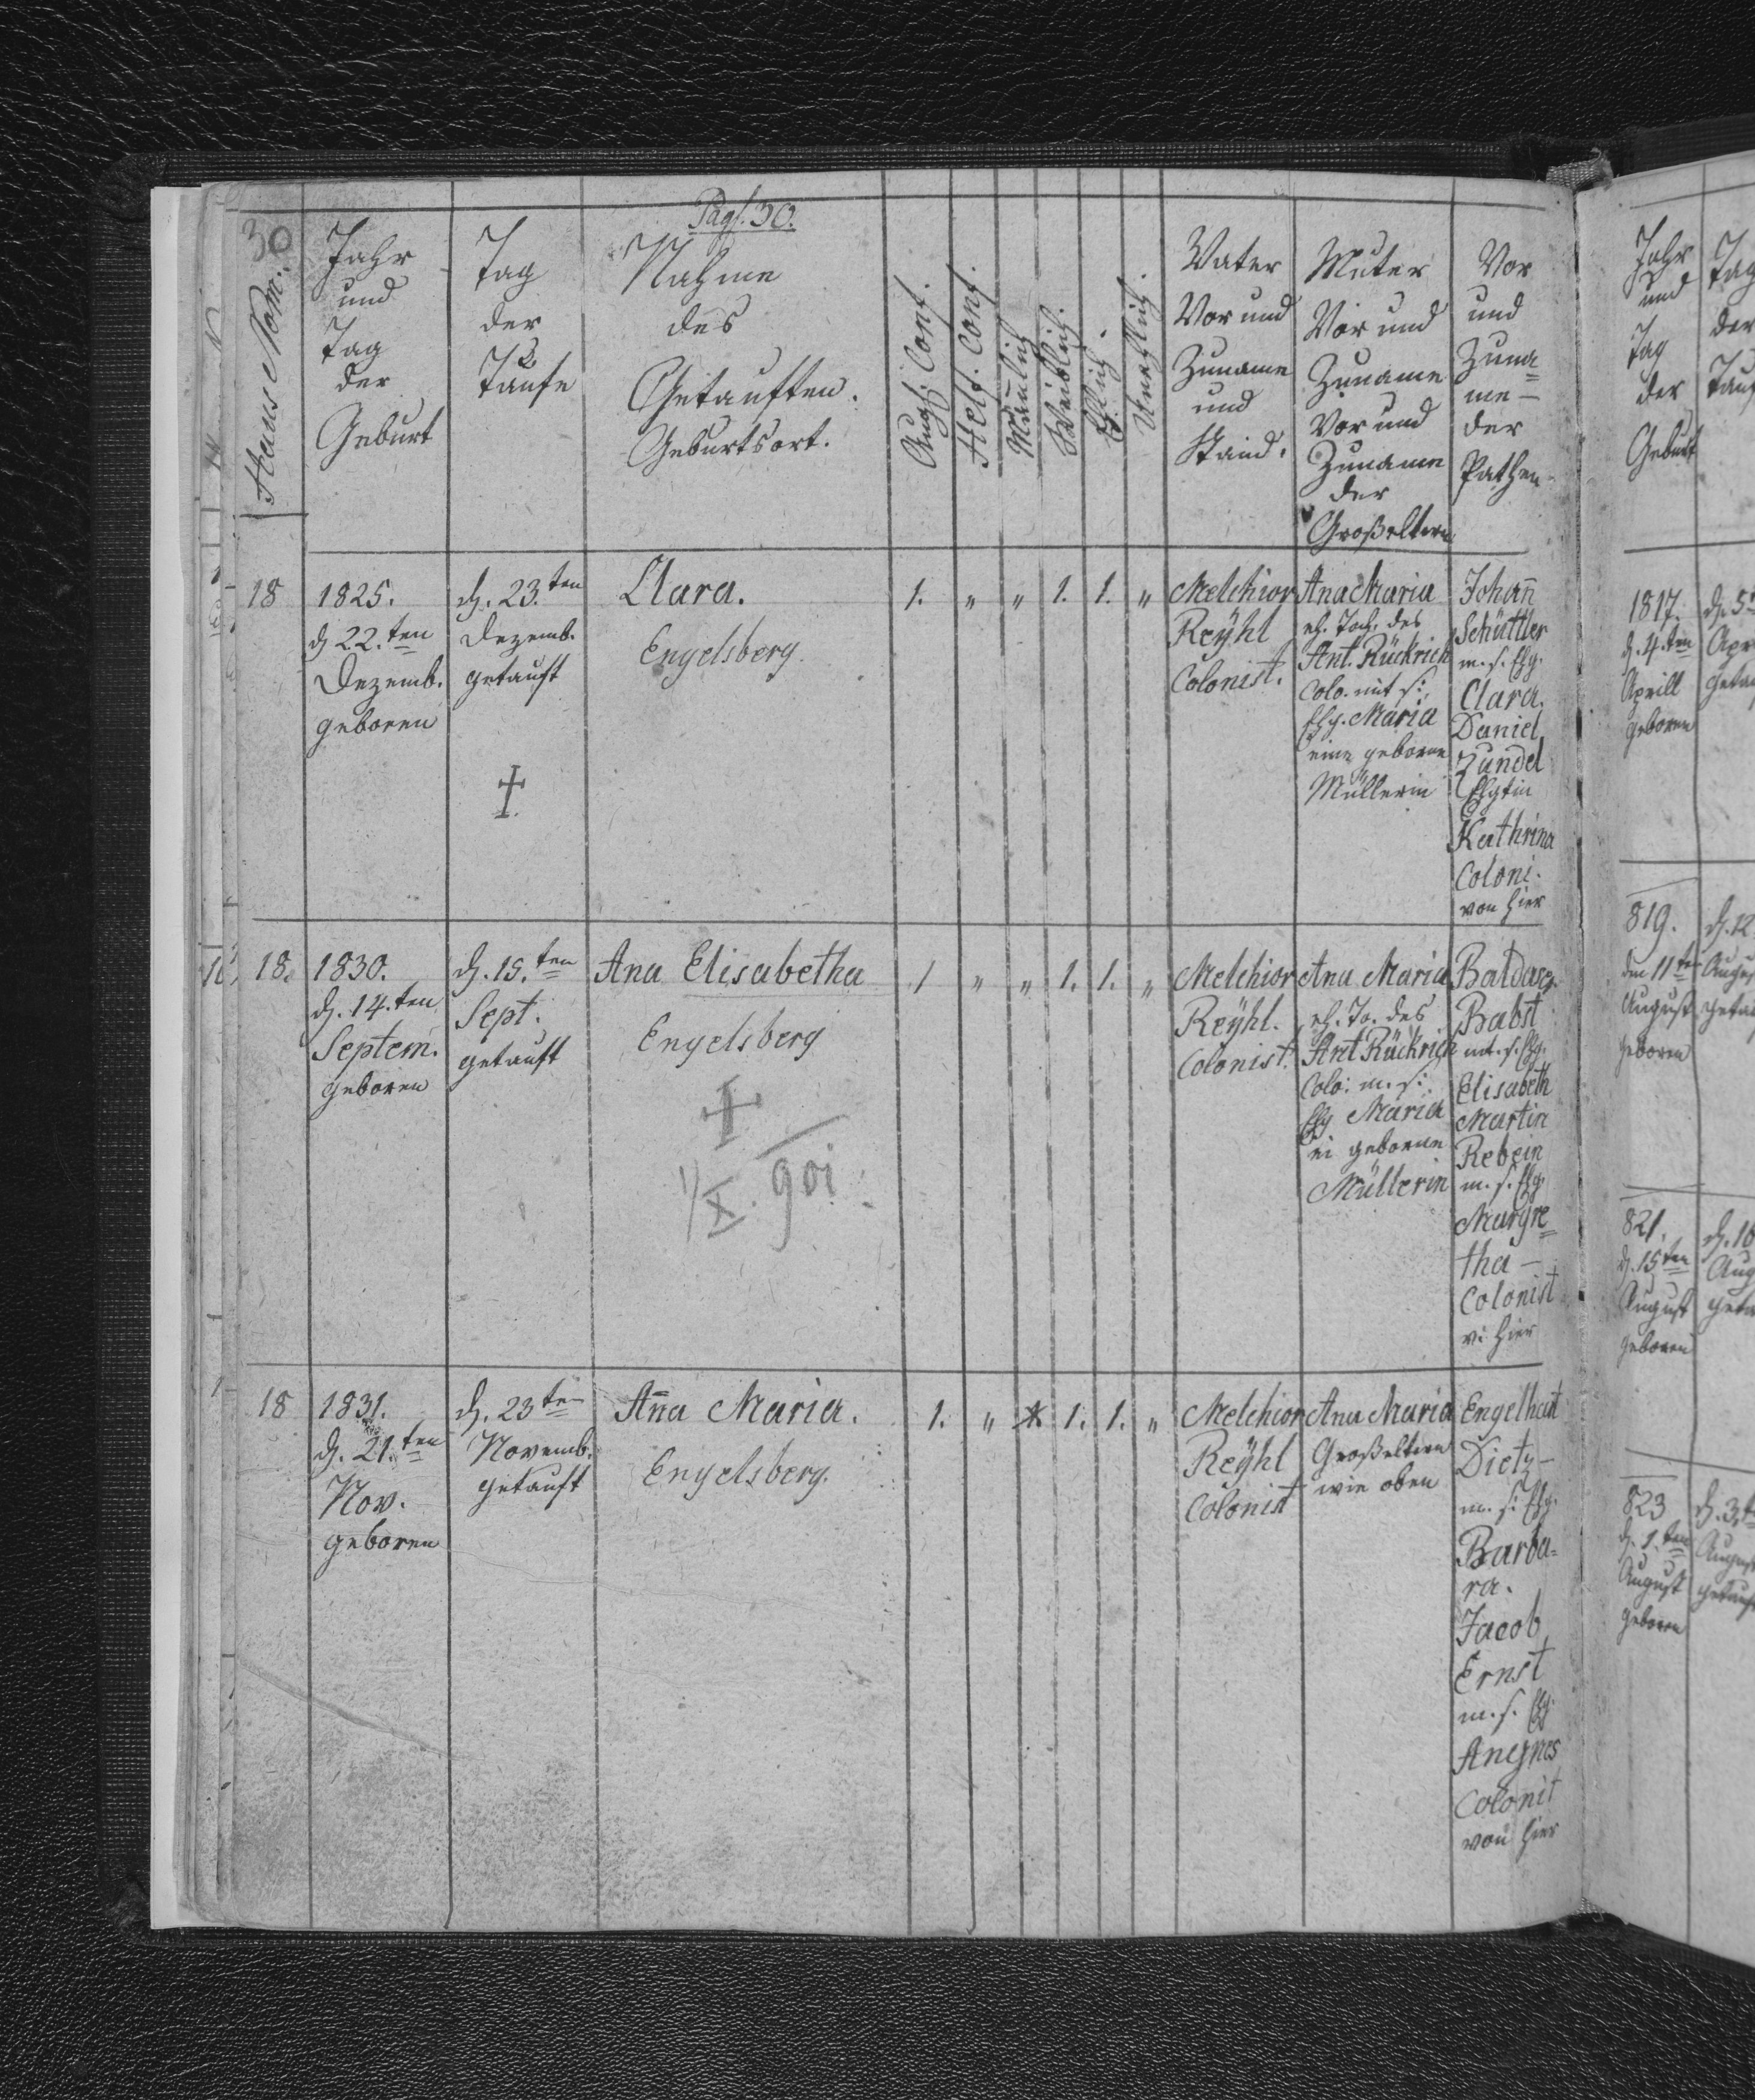 30
Pag. 30.
Haus Nom.
Jahr
und
Tag
der
Geburt
Tag
der
Taufe
Nahme
des
Getauften.
Geburtsort.
Augs. Conf.
Helf. Conf.
Mänlich
Weiblich.
Ehlich.
Unehlich.
Vater
Vor und
Zuname
und
Stand.
Muter
Vor und
Zuname
Vor und
Zuname
der
Großeltern
Vor
und
Zuna=
me
der
Pathen.
18
1825.
d. 22.ten
Dezemb.
geboren
d. 23.ten
Dezemb.
getauft
Clara.
Engelsberg.
1. " " 1. 1. "
Melchior
Reÿhl
Colonist.
Ana Maria
eh. Toch. des
Ant. Rückrich
Colo. mit s.
Ehg. Maria
eine geborne
Müllerin
Johan̄
Schüttler
m. s. Ehg.
Clara.
Daniel
Zundel
Ehgtin
Kathrina
Coloni.
von hier
18.
1830.
d. 14.ten
Septem.
geboren
d. 15.ten
Sept.
getauft
Ana Elisabetha
Engelsberg
1/X. 901
1 " " 1. 1. "
Melchior
Reÿhl.
Colonist.
Ana Maria
eh. To. des
Ant Rückrich
Colo: m. s:
Ehg Maria
ei geborne
Müllerin
Baldasg.
Babst
mt. s. Ehg.
Elisabeth
Martin
Rebein
m. s. Ehg.
Margre=
tha
Colonist
v: hier
18
1831.
d. 21.ten
Nov.
geboren
d. 23ten
Novemb.
getauft
An̄a Maria.
Engelsberg.
1. " 1. 1. "
Melchior
Reÿhl
Colonist
Ana Maria
Großeltern
wie oben
Engelhart
Dietz
m. s: Ehg.
Barba=
ra.
Jacob
Ernst
m. s. Ehg.
Anegnes
Colonit
von hier
Jahr
und
Tag
der
Geburt
1817.
d. 4.ten
Aprill
geboren
819.
den 11ten
August
geboren
821.
d. 15ten
August
geboren
823
d. 1.ten
August
geboren